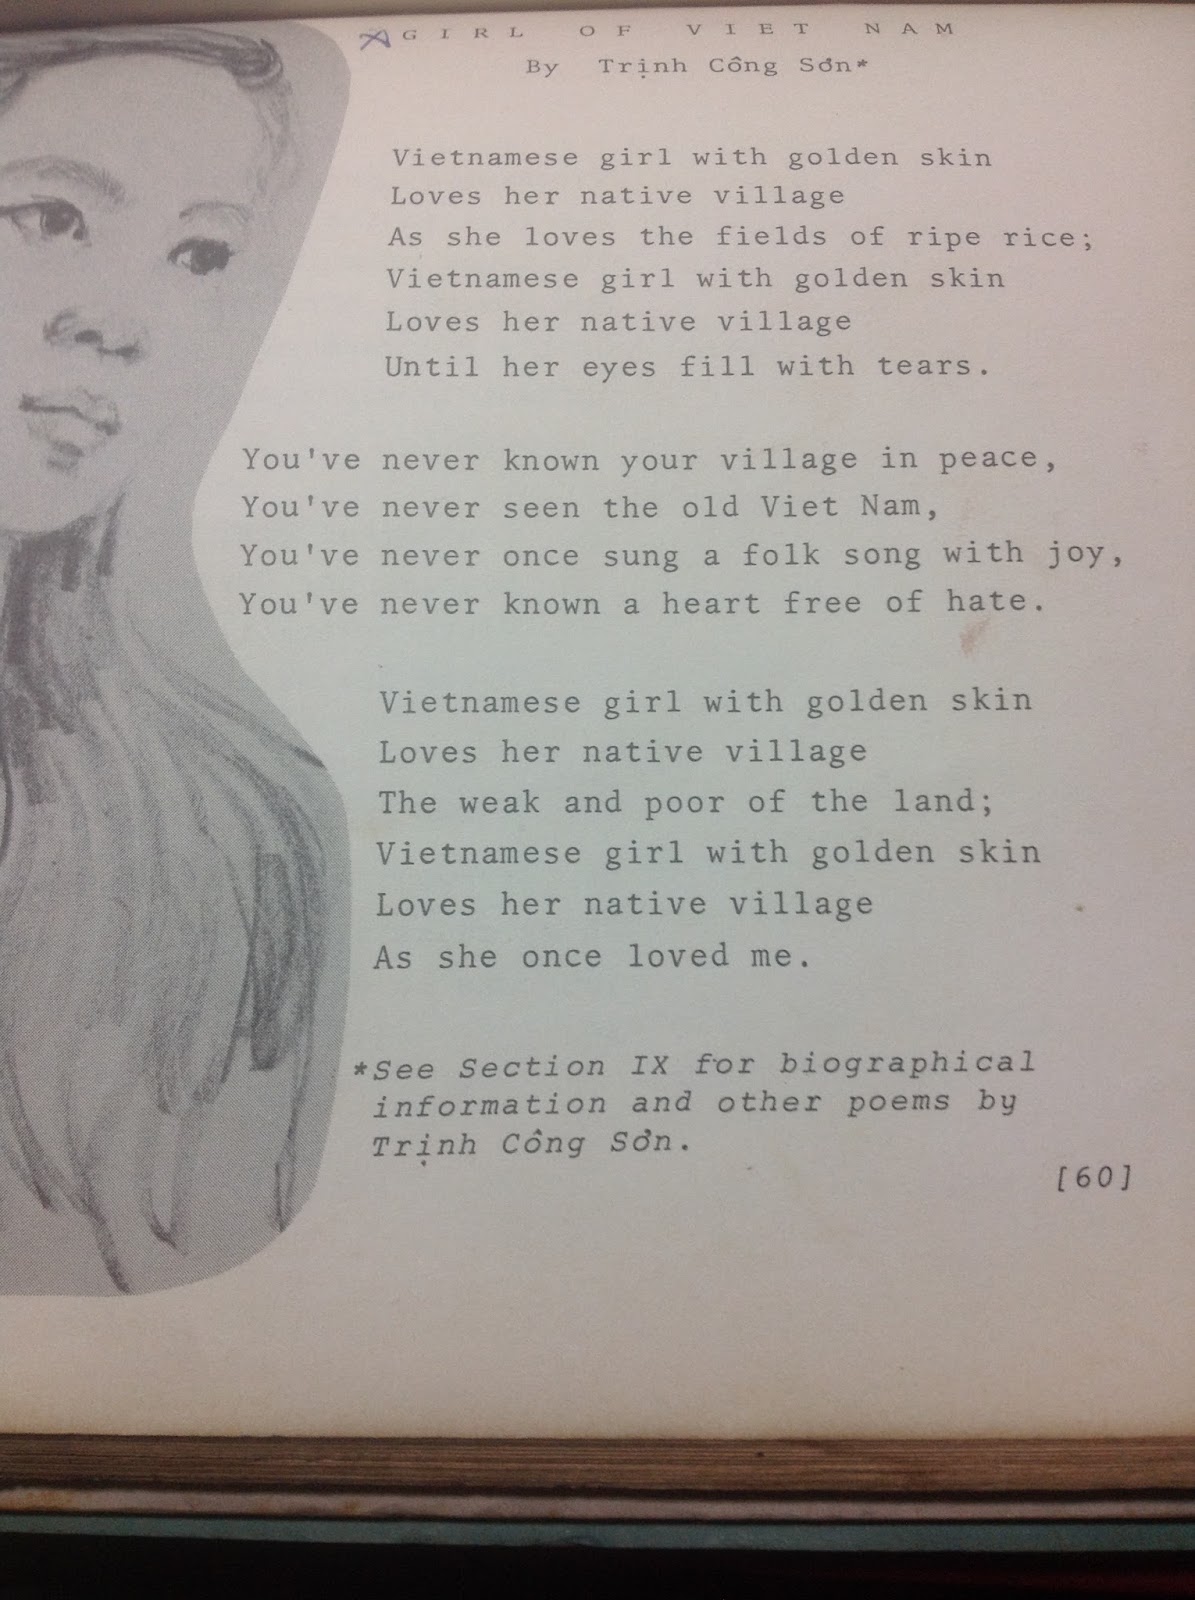 GIRL OF VIET NAM
By Trịnh Công Sơn*
Vietnamese girl with golden skin
Loves her native village
As she loves the fields of ripe rice;
Vietnamese girl with golden skin
Loves her native village
Until her eyes fill with tears.
You've never known your village in peace,
You've never seen the old Viet Nam,
You've never once sung a folk song with joy,
You've never known a heart free of hate.
Vietnamese girl with golden skin
Loves her native village
The weak and poor of the land;
Vietnamese girl with golden skin
Loves her native village
As she once loved me.
*See Section IX for biographical
information and other poems by
Trịnh Công Sơn.
[60]